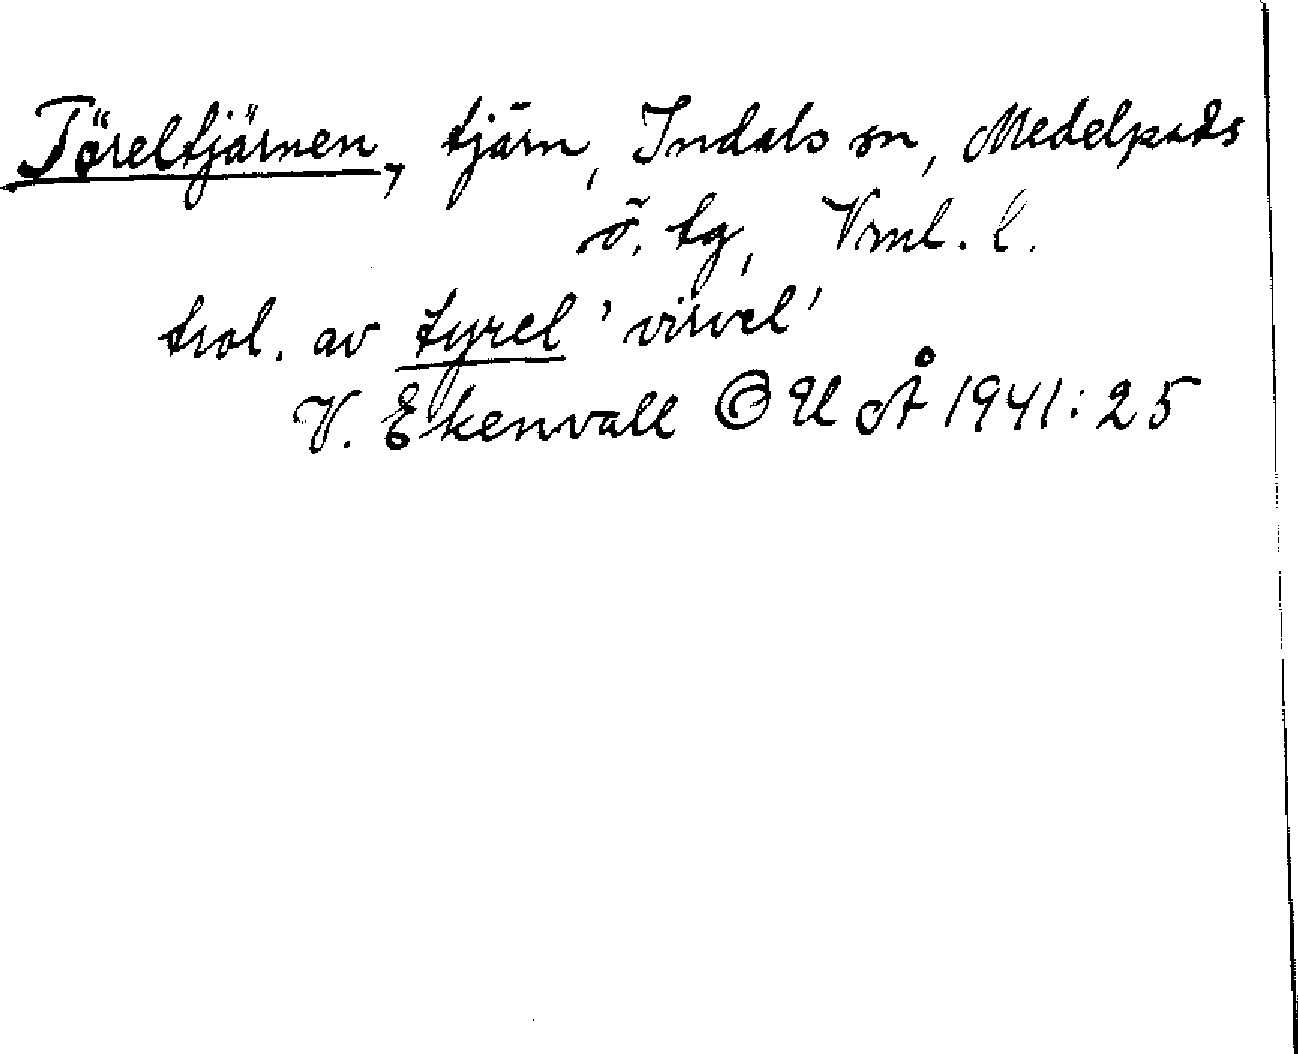 Töreltjärnen, tjärn, Indals sn, Medelpads
ö. tg, Vrnl. l.
trol. av tyrel 'virvel'
V. Ekenvall ⓒ UoÅ 1941: 25